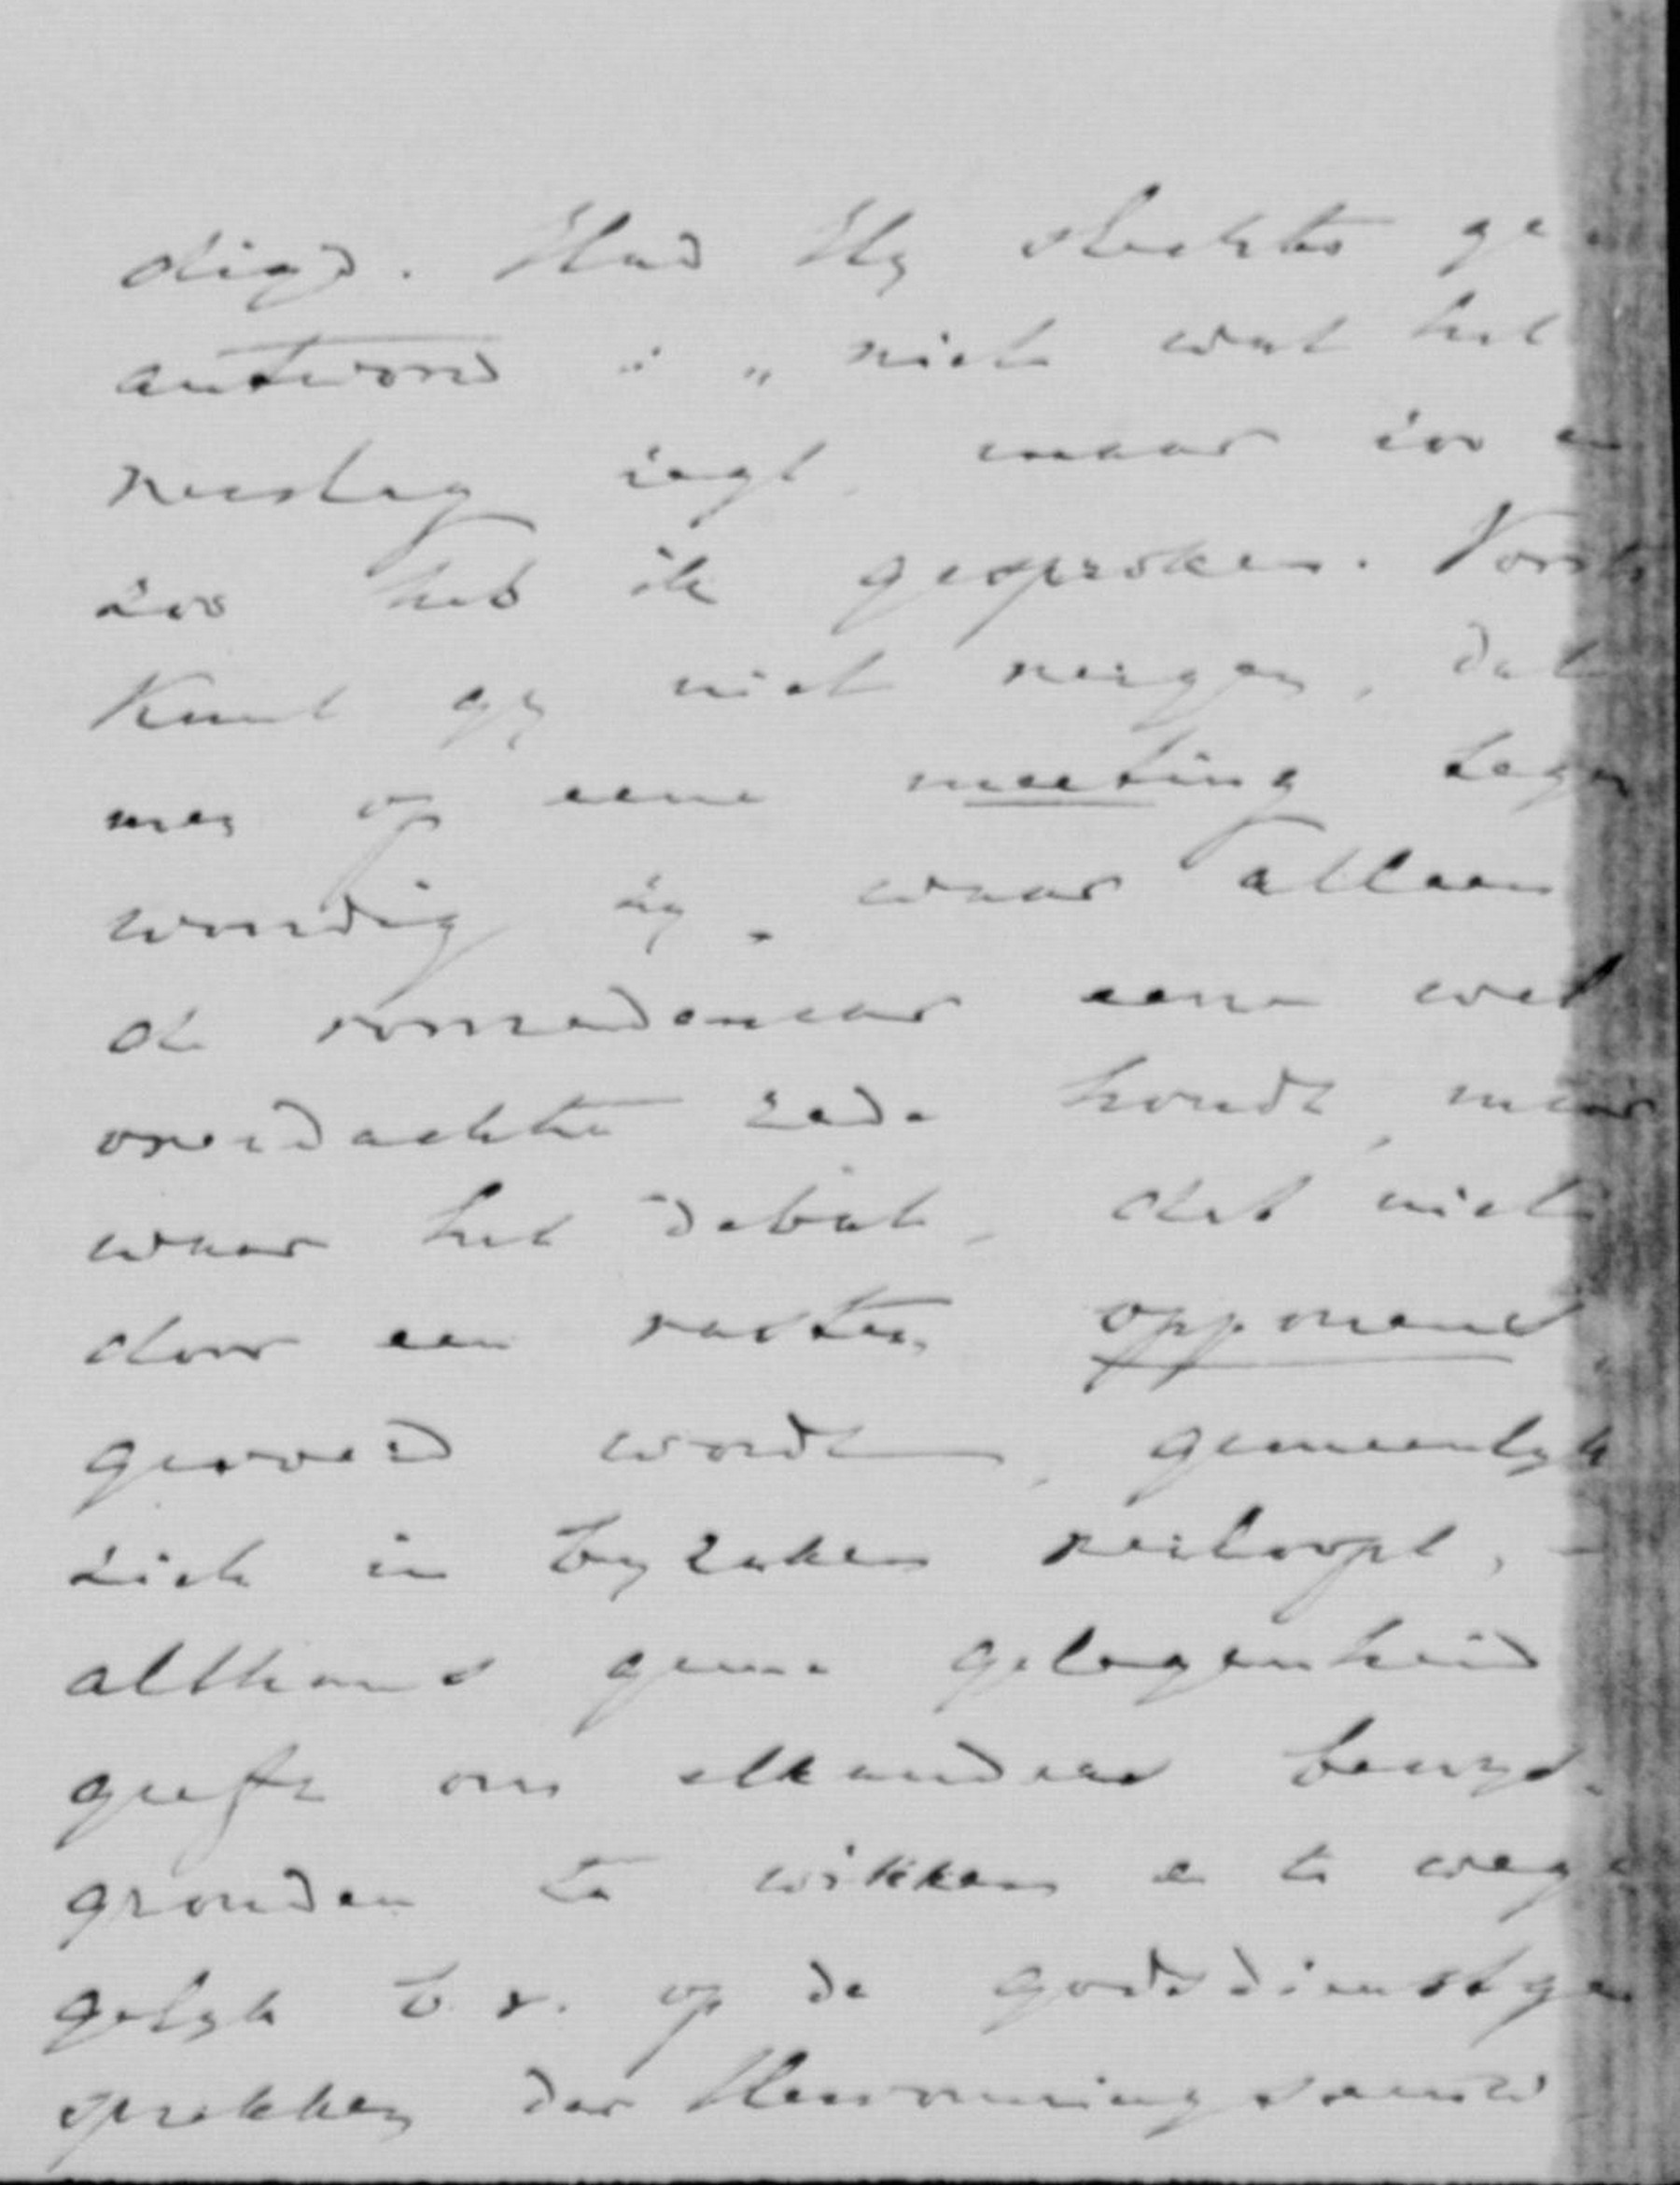 digd. Had Hy slechts ge-
antwoord : „ niet wat het
verslag zegt, maar zoo en
zoo heb ik gesproken. Voorts
Kunt gy niet vergen, dat
men op eene meeting tegen
woordig zy, waar alleen
de voorredenaar eene wel
overdachte rede houdt, maar
waar het debat, dat niet
door een vasten opponent
gevoerd wordt, gemeenlyk
zich in byzaken verloopt, -
althans geene gelegenheid
geeft om elkanders bewys-
gronden te wikken en te wegen
gelyk b.v. op de godsdienstge
sprekken der Hervormingseeuw